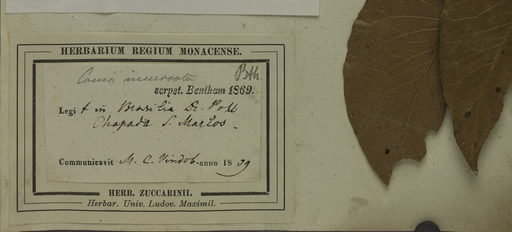 HERBARIUM REGIUM MONACENSE.
Bth
scrpst. Bentham 1869.
Legit in Brasilia Dr. Pohl
Chapada S. Marcos
Communicavit M. C. Vindob. anno 1839
HERB. ZUCCARINII.
Herbar. Univ. Ludov. Maximil.